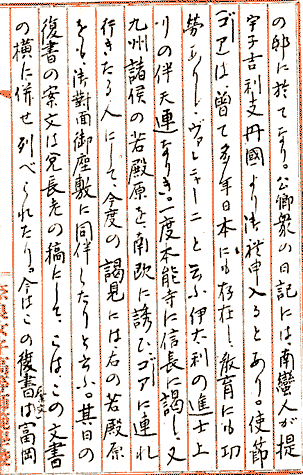 の邸に於てなり。公卿衆の日記には、南蠻人が提
宇子吉利支丹國より御禮申入るとあり。使節
ゴアは、曾て多年日本にも存在し、教育にも功
勞ありし、ヴァレニャーニと云ふ伊太利の進士上
りの伴天連なりき。一度本能寺に信長に謁し、又
九州諸侯の若殿原を、南欧に誘ひゴアに連れ
行きたる人にして、今度の謁見には右の若殿原
をも御對面御座敷に同伴したりと云ふ。其日の
復書の案文は兌長老の稿にして、こは、この文書
の横に併せ列べられたり。今はこの復書全文は富岡